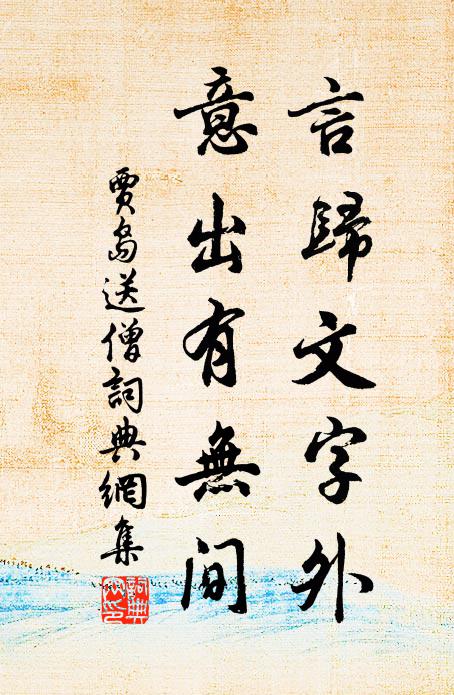 言歸文字外
意出有無間
賈島送僧詞典網集